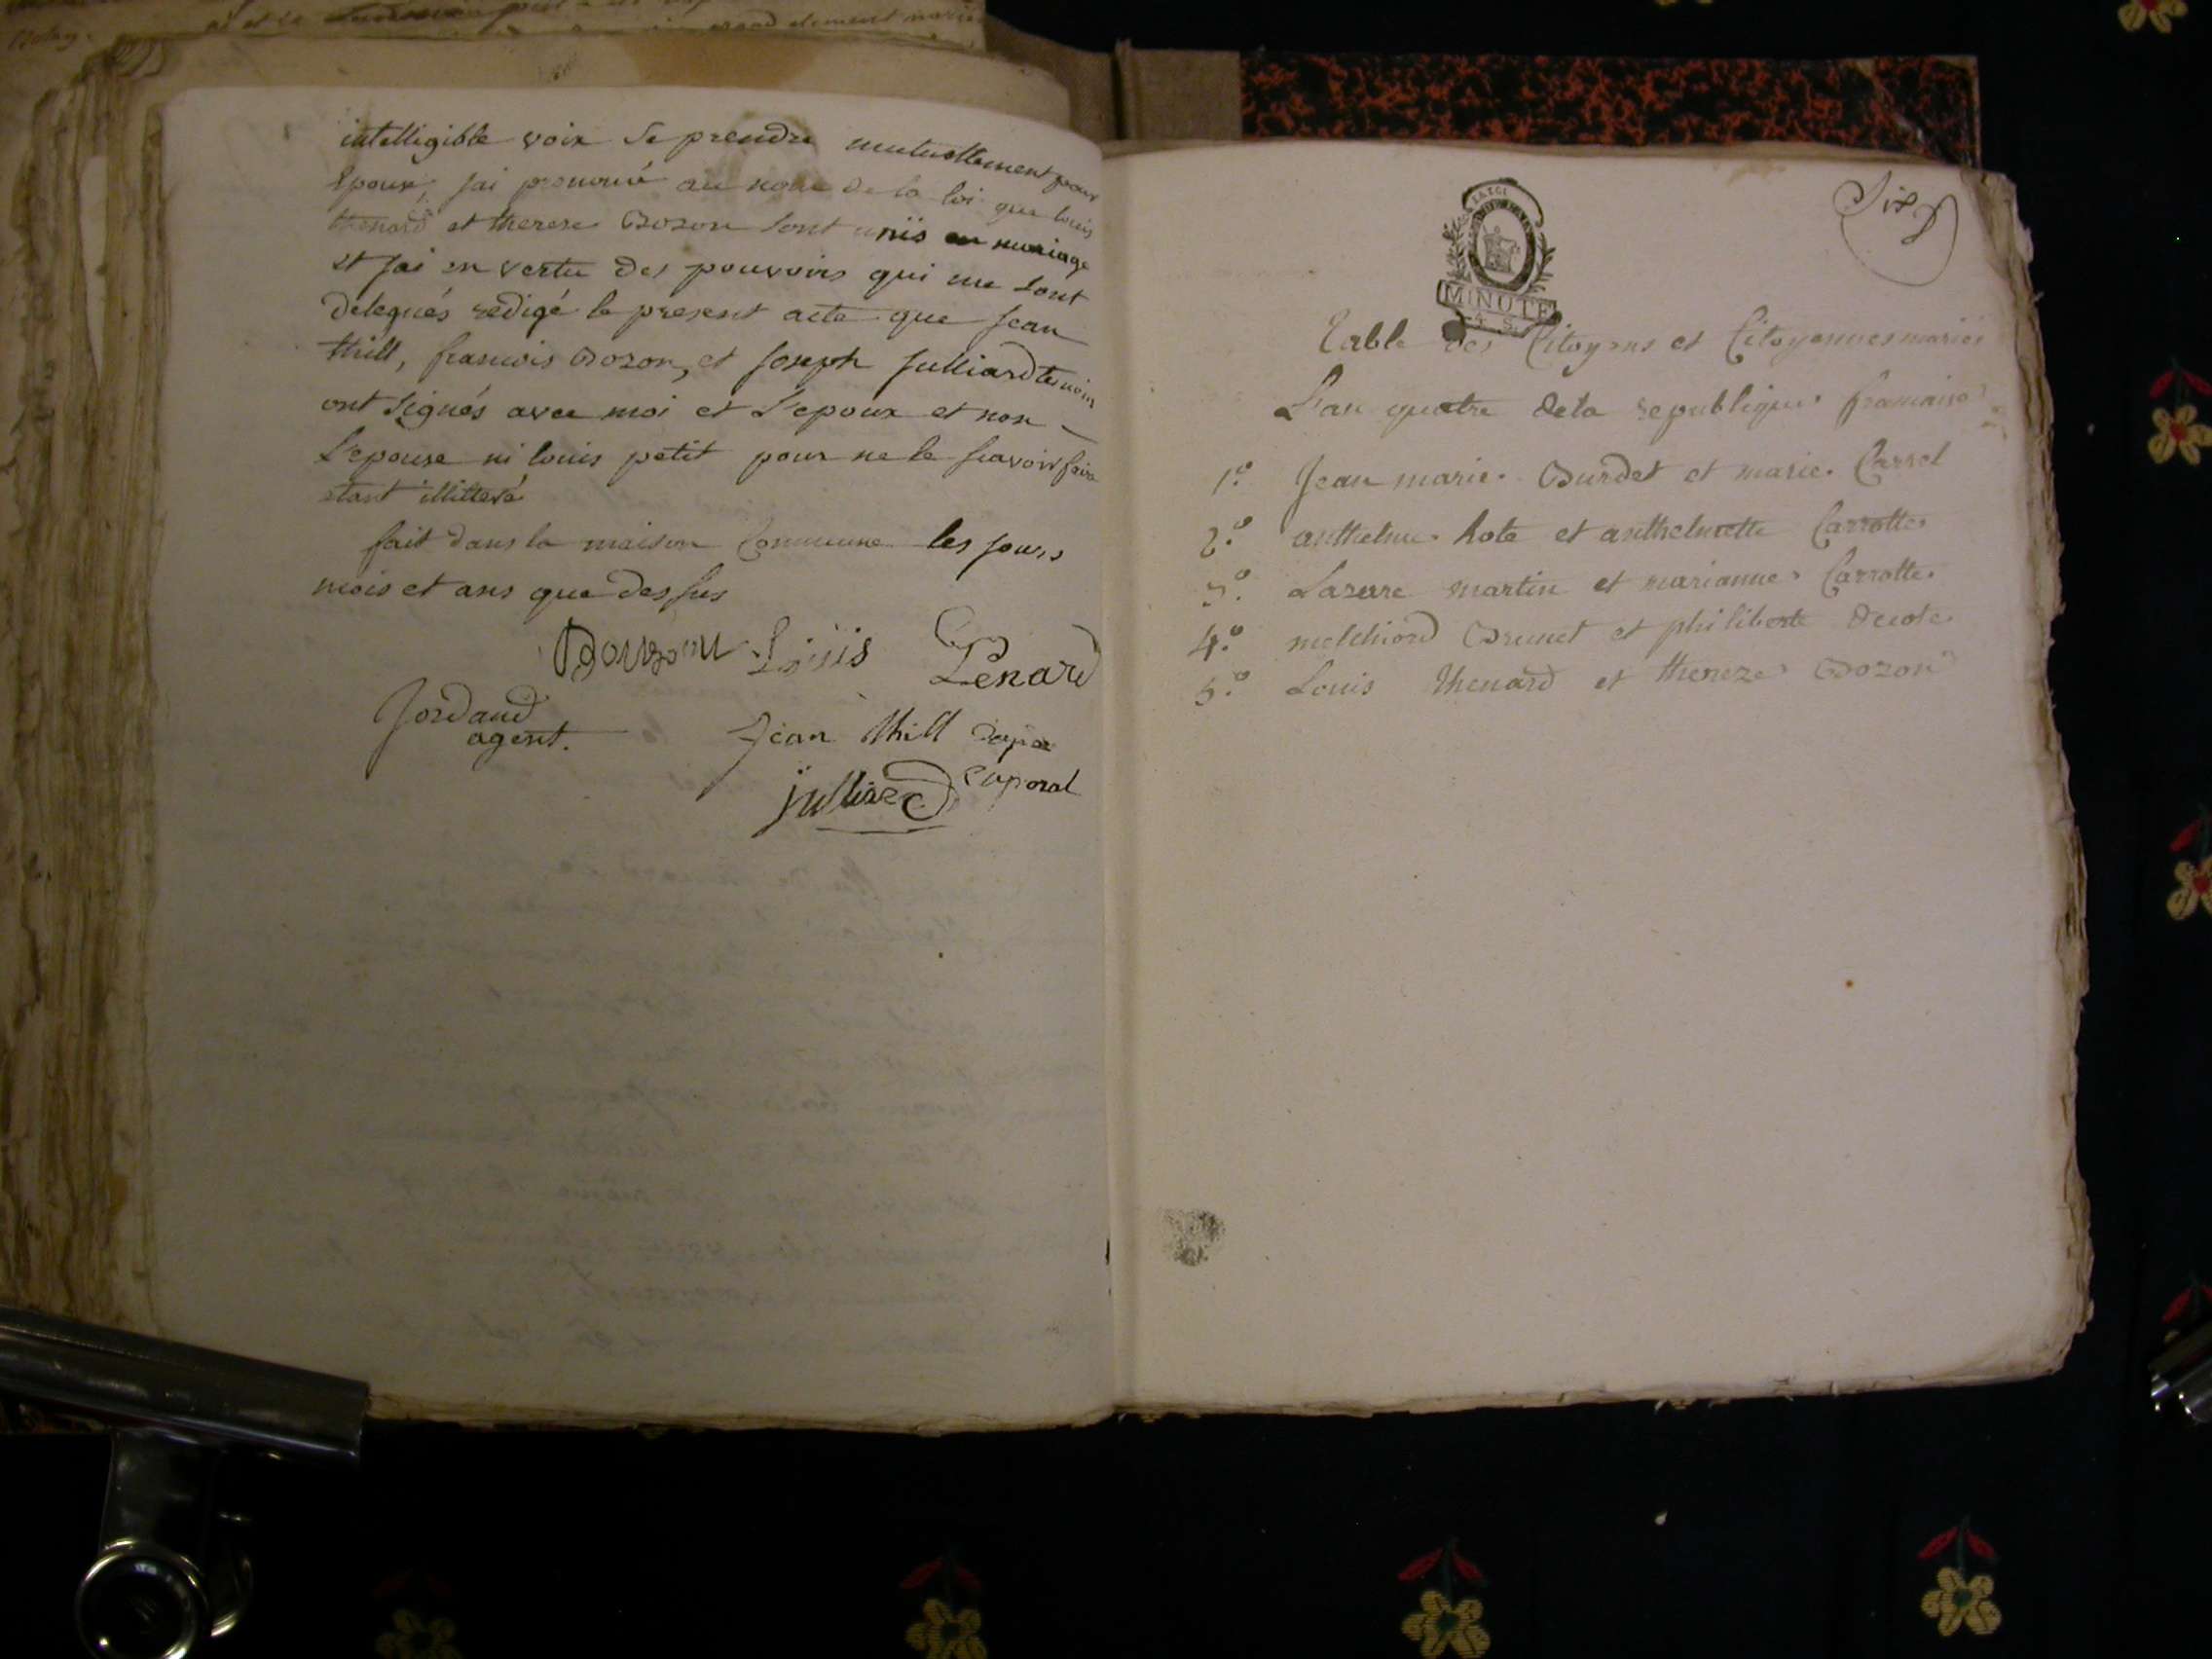 intelligible voix se prendre mutuellement pour
Epoux, jai prononcé au nom de la loi que louis
thenard et therese Bozon sont unis en mariage
et jai en vertu des pouvoirs qui me sont
delegués redigé le present acte que jean
thill, francois Bozon, et joseph julliard temoins
ont signés avec moi et L'epoux et non
L'epouse ni louis petit pour ne le scavoir faire
etant illitteré
fait dans la maison Commune les jours
mois et ans que dessus
Louis Lenard
Jordand
agent.
Jean thill
Caporal
julliard
Six
MINUTE
4. S.
Table des Citoyens et Citoyennes mariés
L'an quatre dela republique francaise
1.º Jean marie Burdet et marie Carrel
2.º anthelme hote et anthelmette Carrotte
3.º Lazarre martin et marianne Carrotte
4.º melchiord Brunet et philiberte Decote
5.º Louis thenard et thereze Bozon